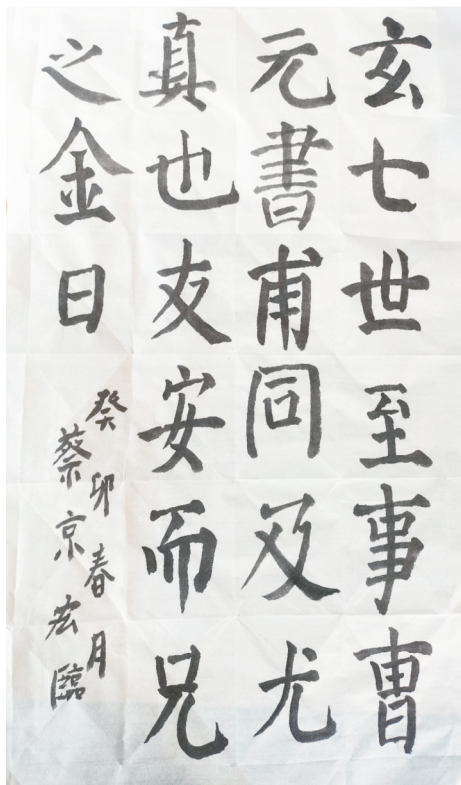 玄七世至事曹
元書甫同及尤
真也友安而兄
之金日
癸卯春月
蔡京宏臨